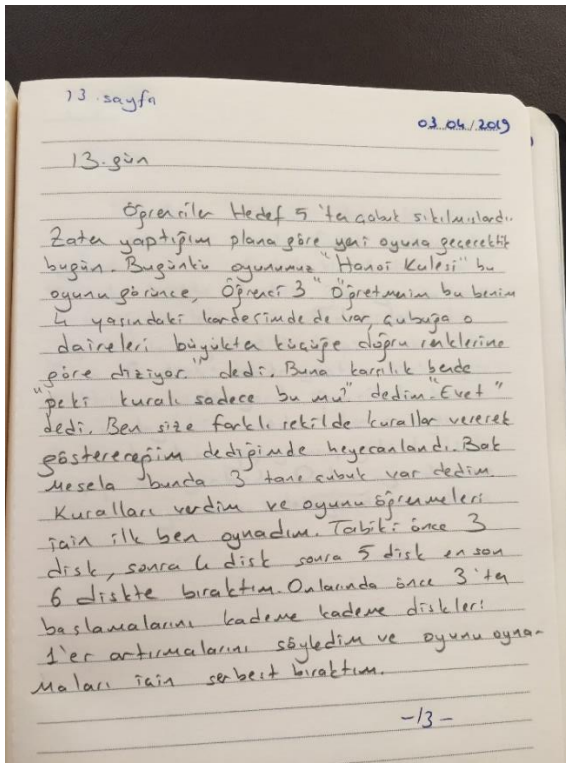 13.sayfa
03.04/2019
13.gün
Öğrenciler Hedef 5'ten çabuk sıkılmışlardı.
Zaten yaptığım plana göre yeni oyuna geçecektik
bugün. Bugünkü oyunumuz "Hanoi Kulesi" bu
oyunu görünce, Öğrenci 3 "Öğretmenim bu benim
4 yaşındaki kardeşimde de var, çubuğa o
daireleri büyükten küçüğe doğru renklerine
göre diziyor." dedi. Buna karşılık bende
"peki kuralı sadece bu mu" dedim "Evet"
dedi. Ben size farklı şekilde kurallar vererek
göstereceğim dediğimde heyecanlandı. Bak
mesela bunda 3 tane çubuk var dedim.
Kuralları verdim ve oyunu öğrenmeleri
için ilk ben oynadım. Tabiki önce 3
disk, sonra 4 disk sonra 5 disk en son
6 diskte bıraktım. Onlarında önce 3'ten
başlamalarını kademe kademe diskleri
1'er artırmalarını söyledim ve oyunu oyna-
maları için serbest bıraktım.
-13-